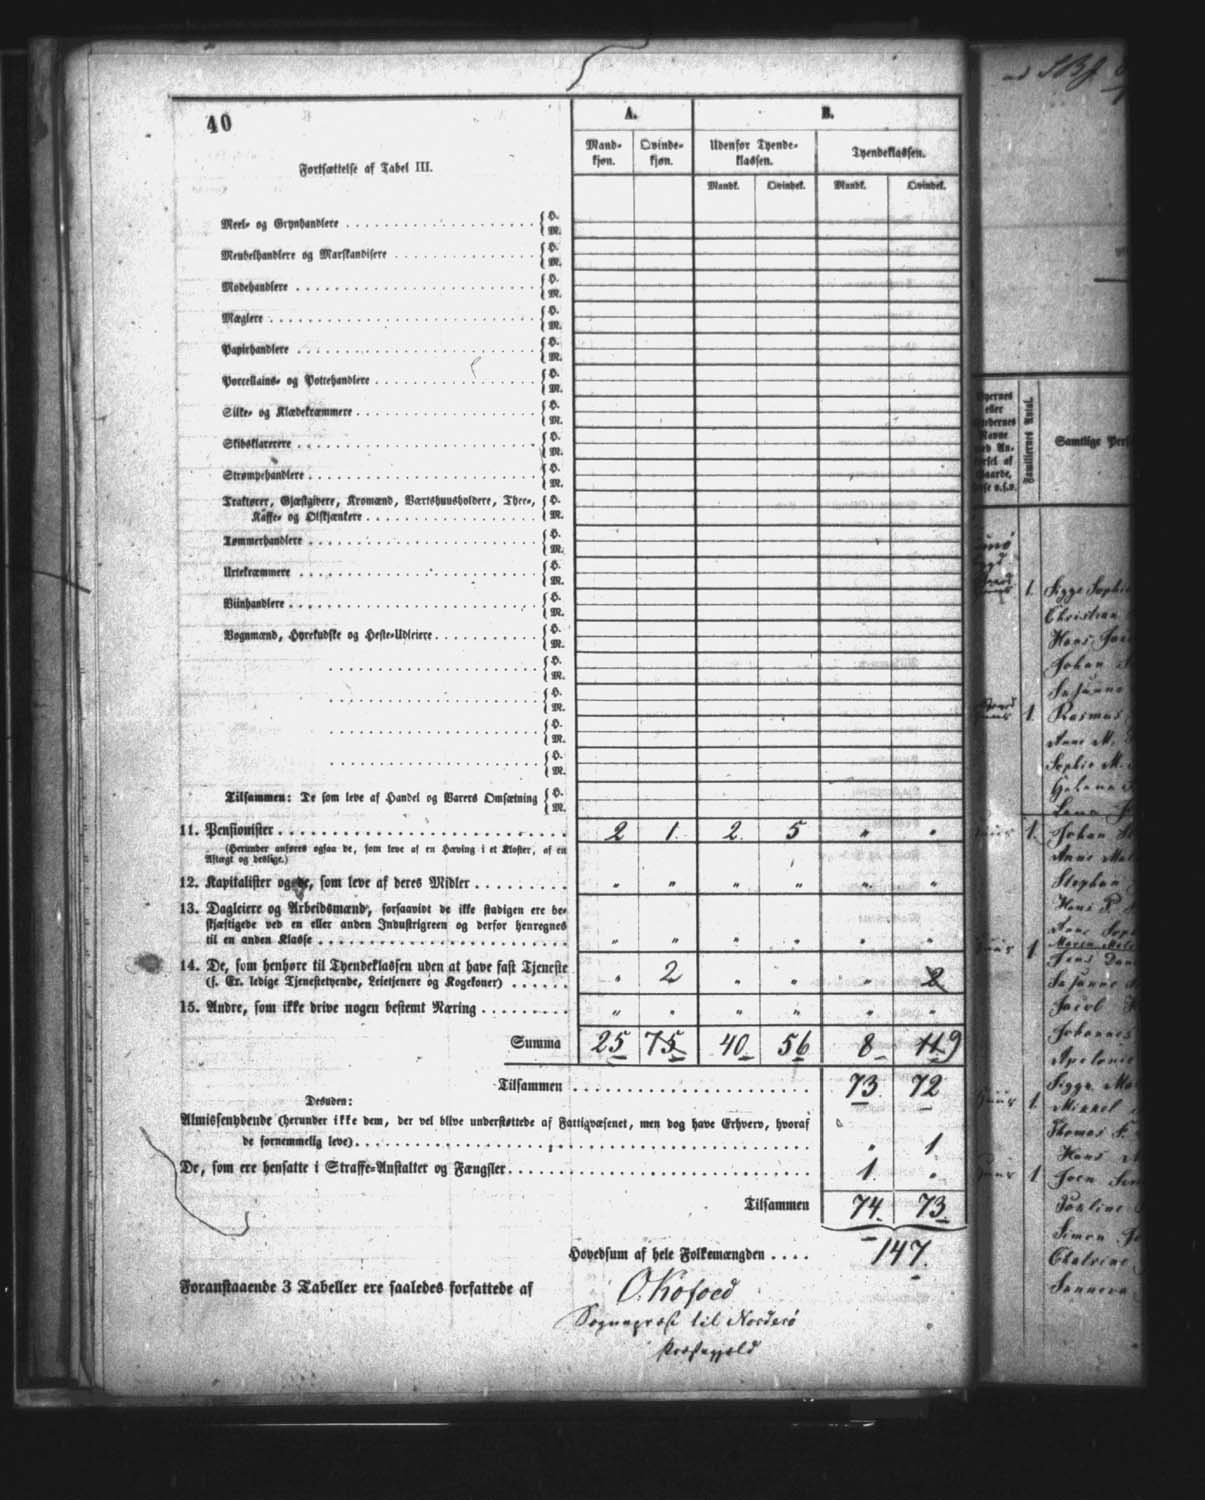 40
A.
B.
Fortsættelse af Tabel III.
Mand-kjøn.
Qvinde-kjøn.
Udenfor Tyende-klassen.
Tyendeklassen.
Mandk.
Qvindek.
Mandk.
Qvindek.
Meel- og Grynhandlere . . . { H. M.
Meubelhandlere og Marskandisere . . . { H. M.
Modehandlere . . . { H. M.
Mæglere . . . { H. M.
Papirhandlere . . . { H. M.
Porcellains- og Pottehandlere . . . { H. M.
Silke- og Klædekræmmere . . . { H. M.
Skibsklarerere . . . { H. M.
Strømpehandlere . . . { H. M.
Traktører, Gjæstgivere, Kromænd, Værtshuusholdere, Thee-,
Kaffe- og Ølskjænkere . . . { H. M.
Tømmerhandlere . . . { H. M.
Urtekræmmere . . . { H. M.
Viinhandlere . . . { H. M.
Vognmænd, Hyrekudske og Heste-Udleiere . . . { H. M.
. . . { H. M.
. . . { H. M.
. . . { H. M.
. . . { H. M.
Tilsammen: De som leve af Handel og Varers Omsætning { H. M.
11. Pensionister . . . 2 1. 2. 5 " "
(Herunder anføres ogsaa de, som leve af en Hæving i et Kloster, af en
Aftægt og deslige.)
12. Kapitalister og de, som leve af deres Midler . . . " " " " " "
13. Dagleiere og Arbeidsmænd, forsaavidt de ikke stadigen ere be-
skjæftigede ved en eller anden Industrigreen og derfor henregnes
til en anden Klasse . . . " " " " " "
14. De, som henhøre til Tyendeklassen uden at have fast Tjeneste
(f. Ex. ledige Tjenestetyende, Leietjenere og Kogekoner) . . . " 2 " " " 2
15. Andre, som ikke drive nogen bestemt Næring . . . " " " " " "
Summa 25 75 40 56 8 119
Tilsammen . . . 73 72
Desuden:
Almissenydende (herunder ikke dem, der vel blive understøttede af Fattigvæsenet, men dog have Erhverv, hvoraf
de fornemmelig leve) . . . " 1
De, som ere hensatte i Straffe-Anstalter og Fængsler . . . 1. "
Tilsammen 74 73
Hovedsum af hele Folkemængden . . . . 147.
Foranstaaende 3 Tabeller ere saaledes forfattede af
O. Kofoed
Sognepræst til Norderø
Præstegjeld
Familiernes Antal.
Samtlige
1. Sigge Sophie
Christian
Hans
Johan
Susanne
1. Rasmus
Anne M.
Sophie M.
Helena
1. Johan
Anne
Stephan
Hans P.
Anne
1 Maren
Jens
Susanne
Jacob
Johannes
Apolonie
Sigge
1. Mikkel
Thomas F.
Hans
1 Joen
Simon
Chatrine